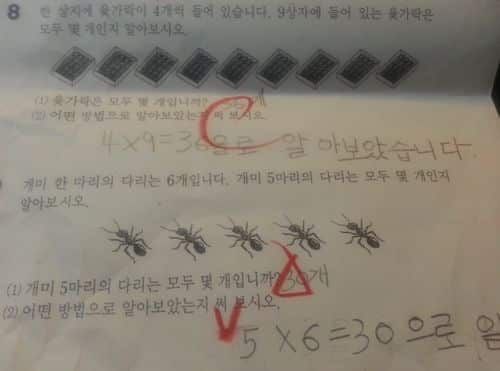 8 한 상자에 윷가락이 4개씩 들어 있습니다. 9상자에 들어 있는 윷가락은
모두 몇 개인지 알아보시오.
(1) 윷가락은 모두 몇 개입니까? 36개
(2) 어떤 방법으로 알아보았는지 써 보시오.
4×9=36으로 알아보았습니다.
개미 한 마리의 다리는 6개입니다. 개미 5마리의 다리는 모두 몇 개인지
알아보시오.
(1) 개미 5마리의 다리는 모두 몇 개입니까? 30개
(2) 어떤 방법으로 알아보았는지 써 보시오.
5×6=30으로 알